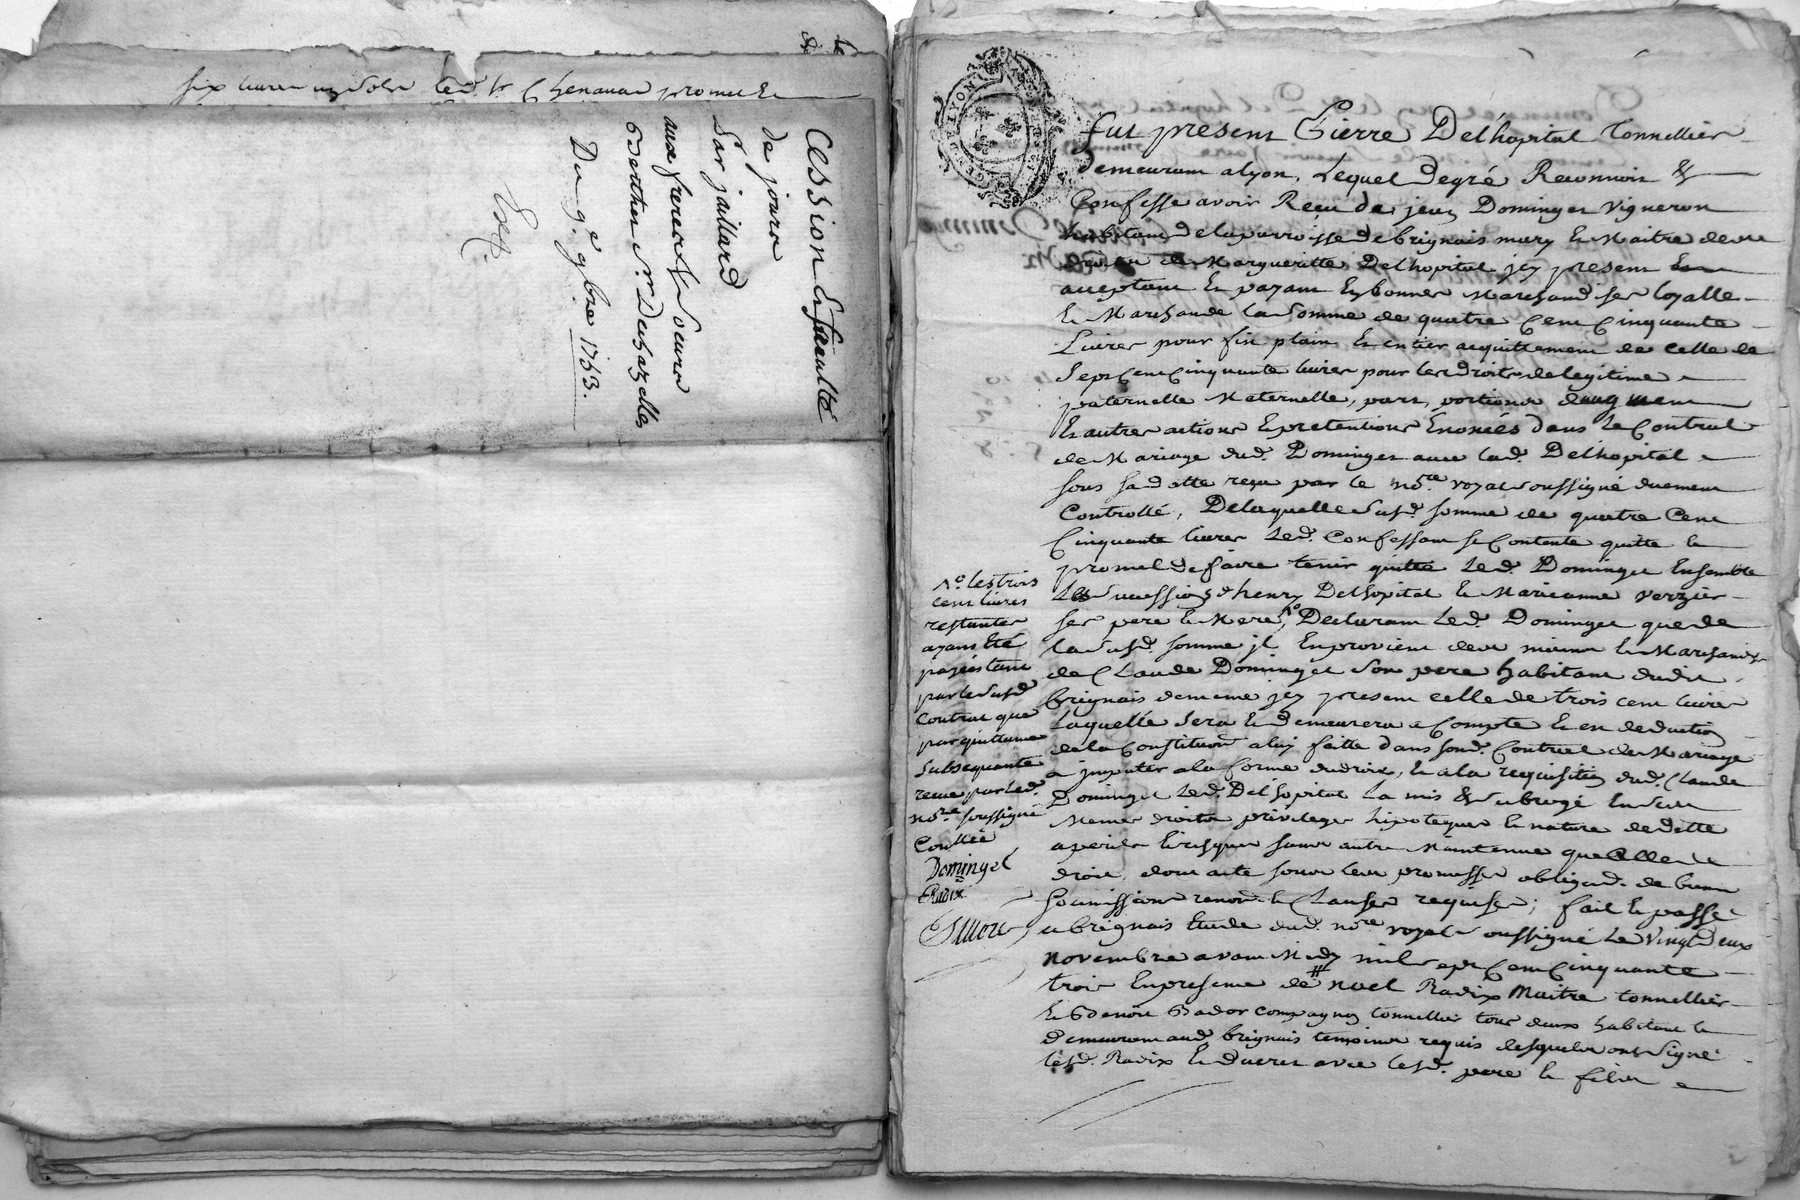 six livres
led. Sr Chenavar promet
Cession & faculté
de jouir
Par Jaillard
aux freres & soeurs
Berthet & Sr Duchazelle
Du 9e 9bre 1753.
Fut present Pierre Delhopital Tonnellier
demeurant a lyon, Lequel degré Reconnoit &
Confesse avoir Receu de jean Dominget Vigneron
habitant de la parroisse de brignais mary & Maitre des
de Margueritte Delhopital jcy present &
acceptant & payant En bonnes Marchand ses loyalle
& Marchande la somme de quatre Cent Cinquante
Livres pour fin plain & entier acquittement de celle de
Sept Cent Cinquante livres pour les droits de legitime
paternelle Maternelle, part, portions daugment
& autres actions & pretentions Enoncés dans le Contrat
de Mariage dud. Dominget avec lad. Delhopital
sous sa datte reçu par le nore royal soussigné duement
Controllé, De laquelle susd. somme de quatre Cent
Cinquante livres led. Confessant se Contente quitte &
promet de faire tenir quitte led. Dominget Ensemble
Les successions d'henry Delhopital & Marieanne Verzier
ses pere & Mere, Declarant led. Dominget que de
la susd. somme jl En provient des mains &
de Claude Dominget son pere habitant dudit
brignais de meme jcy present celle de trois cent livres
Laquelle sera & demeurera a Compte & en deduction
de la Constitution a luy faitte dans sond. Contrat de Mariage
a jmputer a la forme du droit, & a la requisition dud. Claude
Dominget led. Delhopital la mis & subrogé En ses
Memes droits privileges hipoteques & nature de dette
a perils & risques sans autre Maintenue que celle de
droit, dont acte sous leur promesse obligad. de biens
soumissions renon. & Clauses requises; fait & passé
a brignais Etude dud. nore royal soussigné Le Vingt Deux
novembre avant Midy mil sept Cent Cinquante
trois En presence de noel Radix Maitre tonnellier
& Benoit Bador compagnon tonnellier tous deux habitant &
demeurant aud. brignais temoins requis desquels ont signé
led. Radix & avec lesd. pere & fils
No. les trois
cent livres
restantes
ayant été
payés tant
par le susd.
Contrat que
par quittance
Subsequante
receue par led.
nore soussigné
Controllée
Dominget
Radix